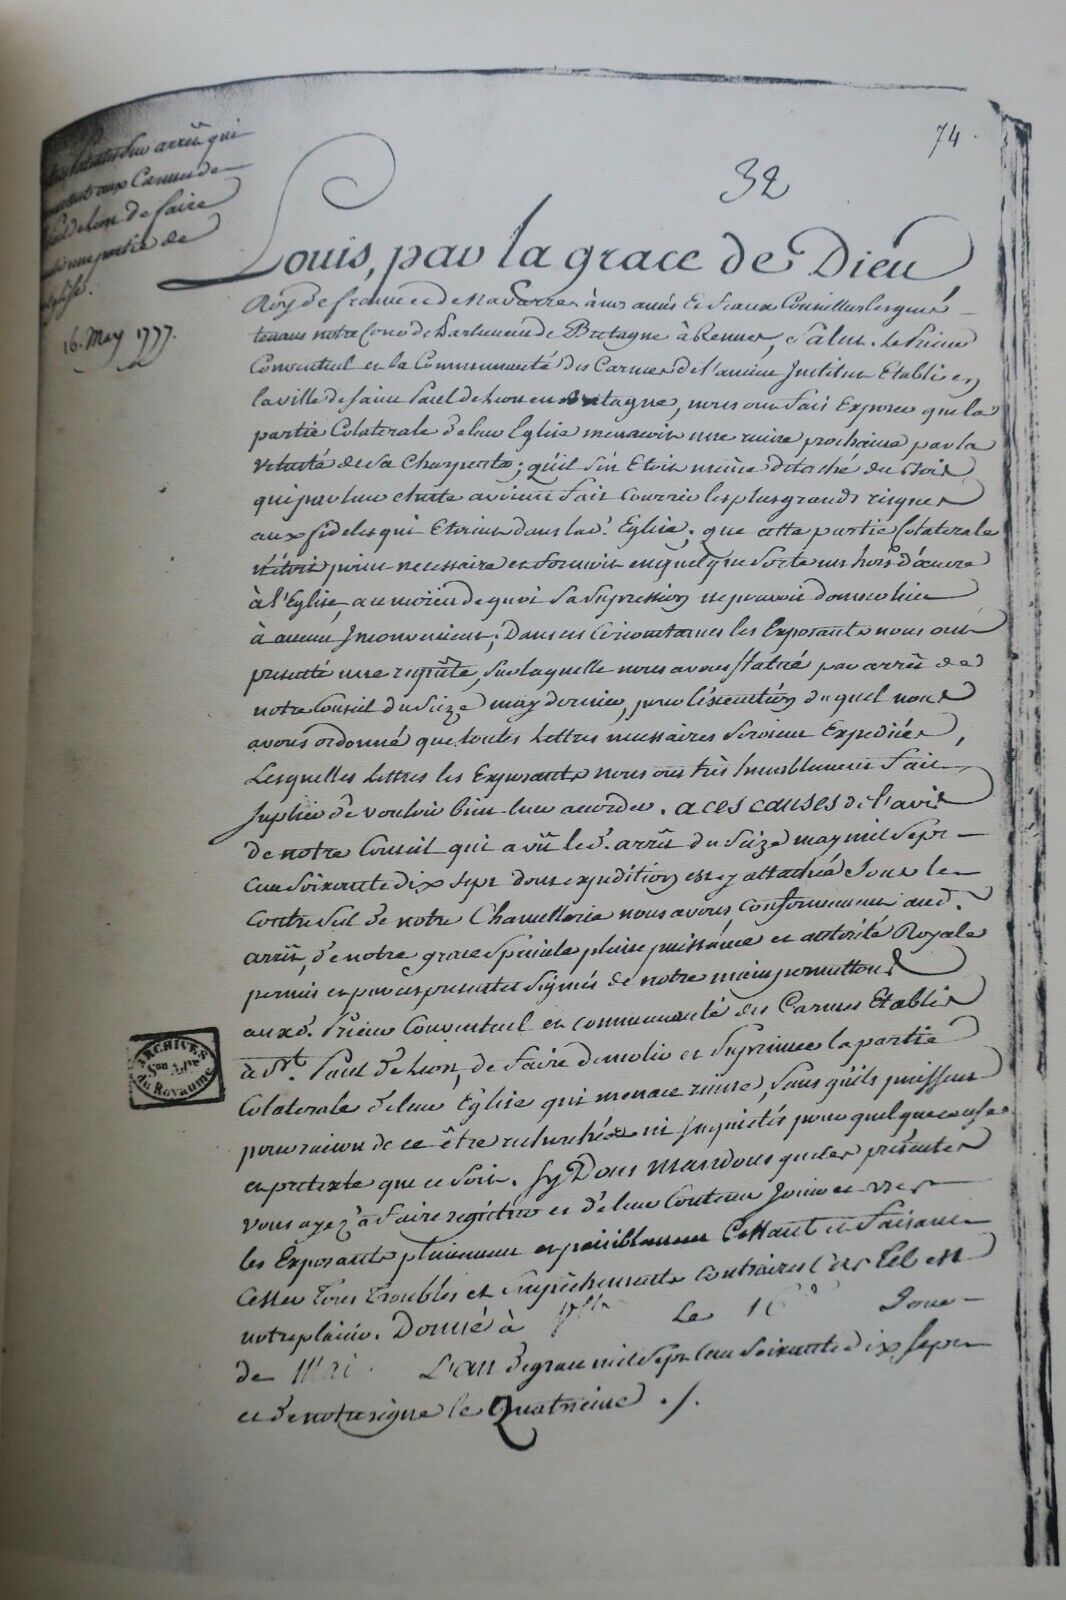 74.
32
arrêt qui
aux Carmes de
de Leon de faire
une partie de
Eglise.
16. May 1777.
Louis, par la grace de Dieu
Roy de france et de Navarre à nos amés et feaux Conseillers les gens
tenans notre Cour de Parlement de Bretagne à Rennes, Salut. Le Prieur
Conventuel et la Communauté des Carmes de l'ancien Institut Etablis en
la ville de saint Paul de Leon en Bretagne, nous ont fait Exposer que la
partie Colaterale de leur Eglise menacoit une ruine prochaine par la
vetusté de sa Charpente; qu'il s'en Etoit même détaché du bois
qui par leur chute avoient fait courrir les plus grands risques
aux fideles qui Etoient dans lad. Eglise; que cette partie Colaterale
n'étoit point necessaire et formoit en quelque sorte un hors d'œuvre
à l'Eglise, au moïen de quoi sa Supression ne pouvoit donner lieu
à aucun Inconvenient; Dans ces Circonstances les Exposants nous ont
presenté une requête, sur laquelle nous avons statué par arrêt de
notre Conseil du Seize may dernier, pour l'éxecution duquel nous
avons ordonné que toutes Lettres necessaires seroient Expediées,
Lesquelles Lettres les Exposants nous ont très humblement fait
suplier de vouloir bien leur accorder. A CES CAUSES de l'avis
de notre Conseil qui a vû led. arrêt du Seize may mil sept
cent soixante dix sept dont expedition est cy attachée sous le
contre scel de notre Chancellerie nous avons conformement aud.
arrêt, de notre grace speciale pleine puissance et autorité Royale
permis et par ces presentes signées de notre main permettons
auxd. Prieur Conventuel et communauté des Carmes Etablis
à St. Paul de Leon, de faire démolir et suprimer la partie
Colaterale de leur Eglise qui menace ruine, sans qu'ils puissent
pour raison de ce être recherchés ni inquietés pour quelque cause
et pretexte que ce soit. Sy Vous Mandons que ces presentes
vous ayez à faire registrer et de leur contenu jouir et user
les Exposants pleinement et paisiblement Cessant et faisant
cesser tous troubles et Empêchements contraires Car tel est
notre plaisir. Donné à Vlles Le 16e Jour
de Mai L'an de grace mil sept cent soixante dix sept
et de notre regne le Quatrieme ./.
ARCHIVES
Son Adre
du ROYAUME